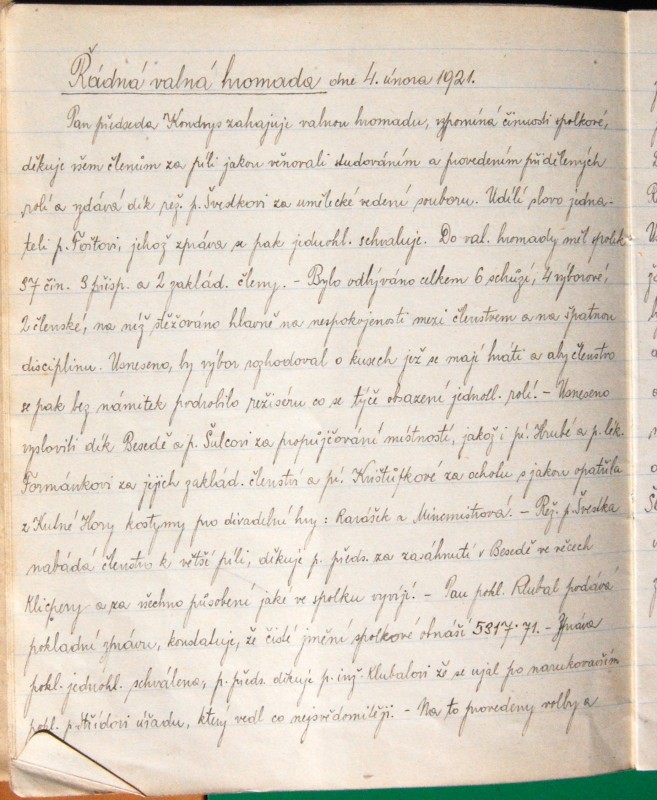 Řádná valná hromada dne 4. února 1921.
Pan předseda Kondrys zahajuje valnou hromadu, vzpomíná činnosti spolkové,
děkuje všem členům za píli jakou věnovali studováním a provedením přidělených
rolí a vzdává dík rež. p. Švestkovi za umělecké vedení souboru. Udílí slovo jedna-
teli p. Foitovi, jehož zpráva se pak jednohl. schvaluje. Do val. hromady měl spolek
37 čin. 3 přisp. a 2 zaklád. členy. – Bylo odbýváno celkem 6 schůzí, 4 výborové,
2 členské, na níž stěžováno hlavně na nespokojenosti mezi členstvem a na špatnou
disciplinu. Usneseno, by výbor rozhodoval o kusech jež se mají hráti a aby členstvo
se pak bez námitek podrobilo režiséru co se týče obsazení jednotl. rolí. – Usneseno
vysloviti dík Besedě a p. Šulcovi za propůjčování místností, jakož i pí. Hrubé a p. lék.
Formánkovi za jejich zaklád. členství a pí. Krištůfkové za ochotu s jakou opatřila
z Kutné Hory kostymy pro divadelní hry: Rarášek a Minemistrová. – Rež. p. Švestka
nabádá členstvo k větší píli, děkuje p. předs. za zasáhnutí v Besedě ve věcech
Klicpery a za všechno působení jaké ve spolku vyvíjí. – Pan pokl. Klubal podává
pokladní zprávu, konstatuje, že čisté jmění spolkové obnáší 5317·71. – Zpráva
pokl. jednohl. schválena, p. předs. děkuje p. inž. Klubalovi že se ujal po narukovavším
pokl. p. úřadu, který vedl co nejsvědomitěji. – Na to provedeny volby a